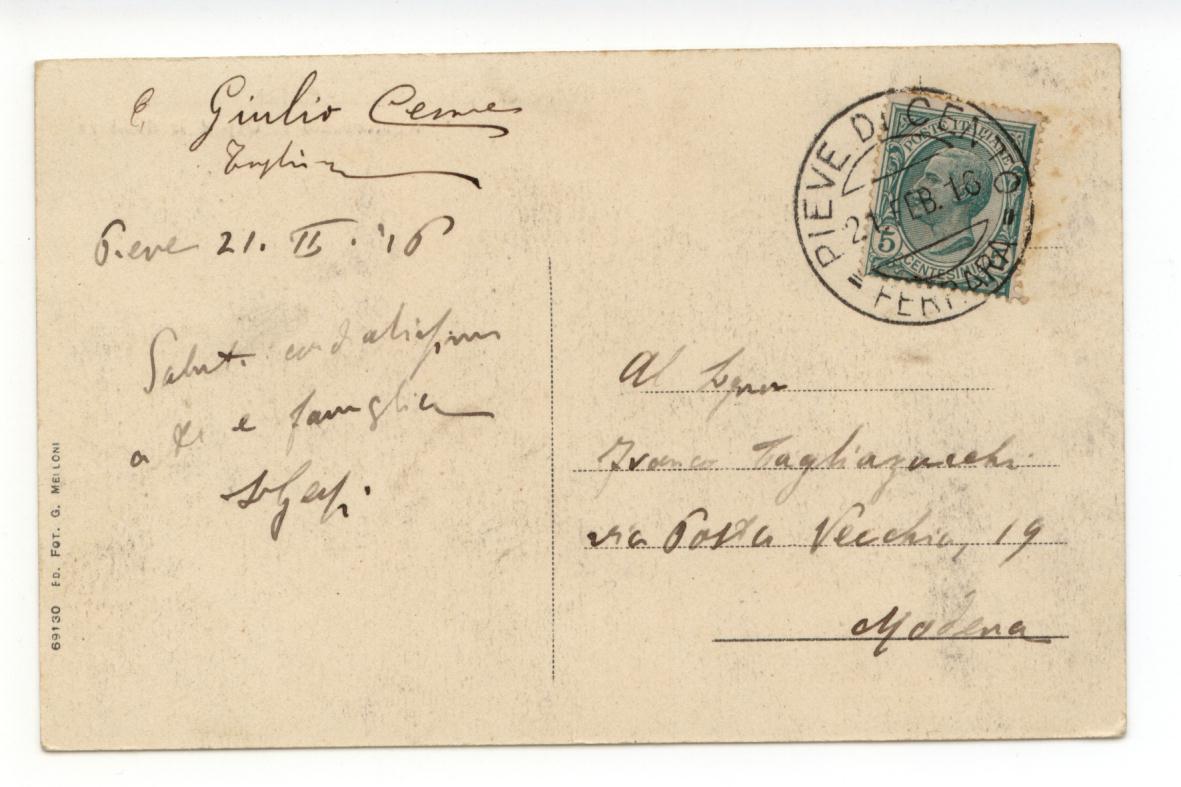 Giulio
Pieve 21. II. '16
Saluti cordialissimi
a te e famiglia
69130 ED. FOT. G. MELLONI
PIEVE DI CENTO
21 FEB. 16
= FERRARA =
POSTE ITALIANE
5
CENTESIMI
Al Signor
Franco Tagliazucchi
via Posta Vecchia, 19
Modena